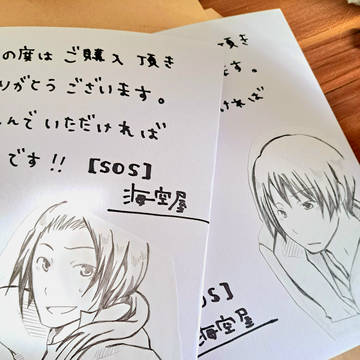 の度は ご購入 頂き
りがとう ございます。
んで いただければ
です!! [SOS]
海空屋
頂き
す。
ければ
OS]
海空屋